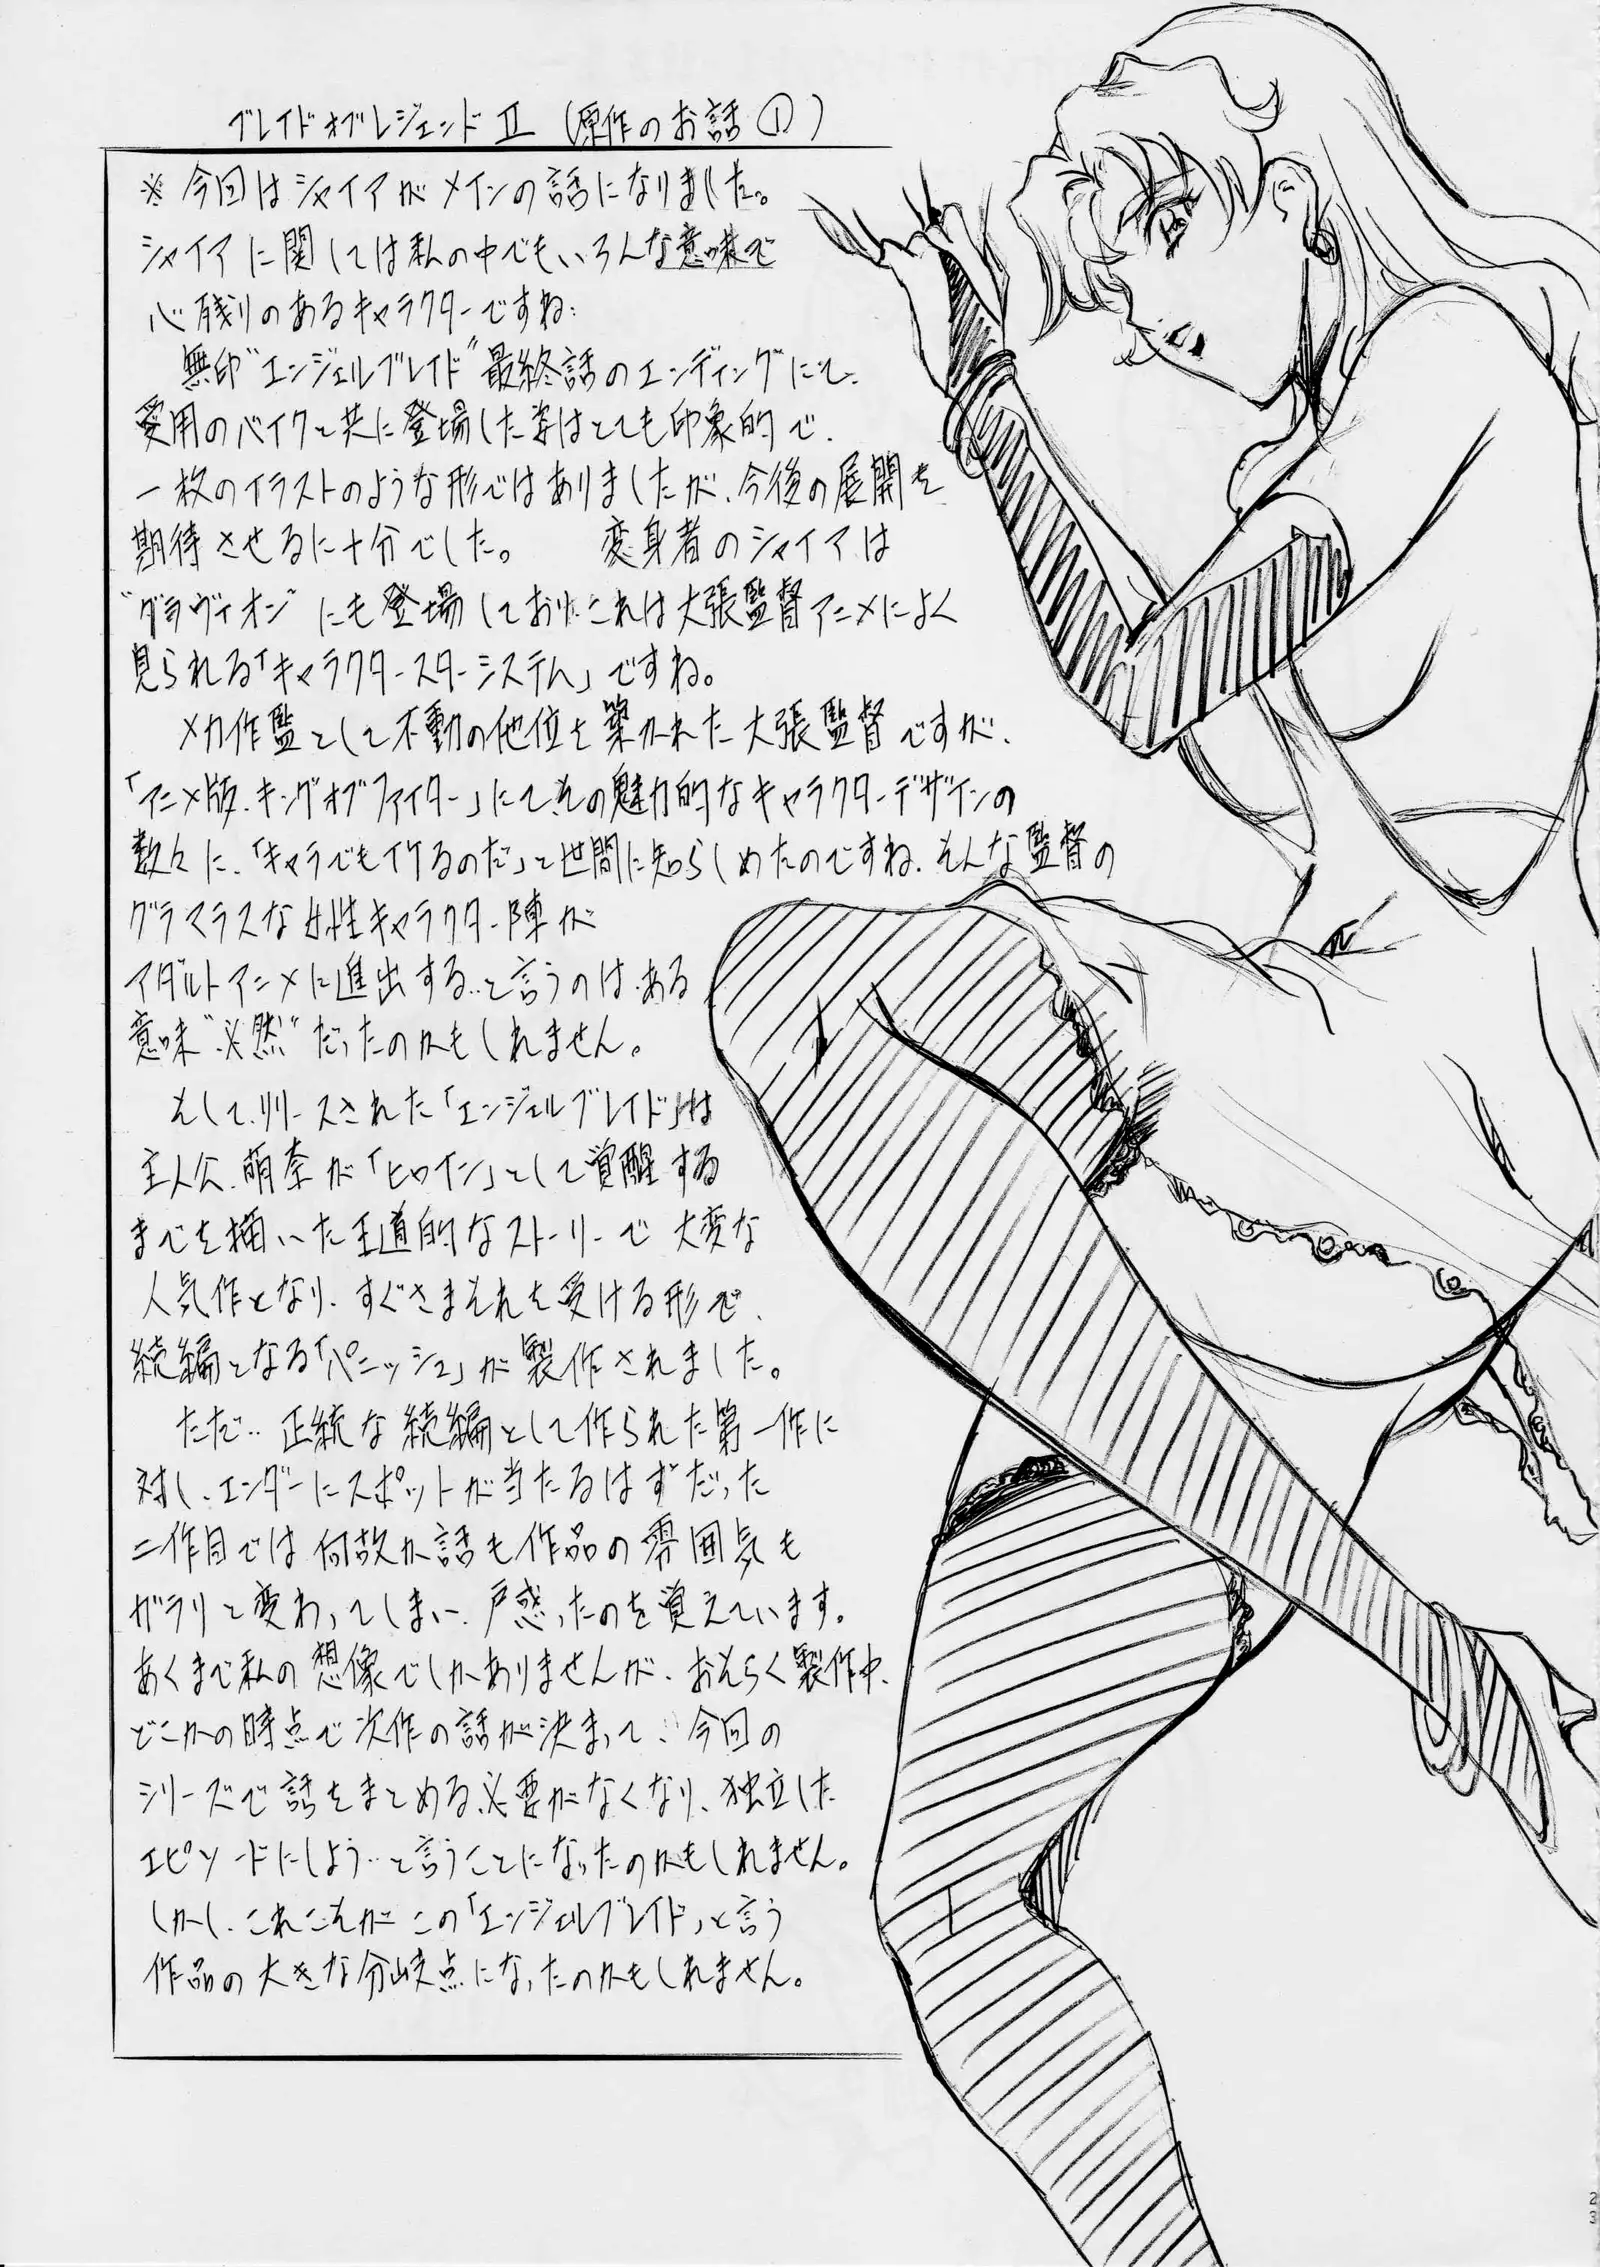 ブレイドオブレジェンドⅡ (原作のお話①)
※今回はシャイアがメインの話になりました。
シャイアに関しては私の中でもいろんな意味で
心残りのあるキャラクターですね‥
無印"エンジェルブレイド"最終話のエンディングにて、
愛用のバイクと共に登場した姿はとても印象的で、
一枚のイラストのような形ではありましたが、今後の展開を
期待させるに十分でした。 変身者のシャイアは
"グラヴィオン"にも登場しており、これは大張監督アニメによく
見られる「キャラクタースターシステム」ですね。
メカ作監として不動の地位を築かれた大張監督ですが、
「アニメ版・キングオブファイター」にて、その魅力的なキャラクターデザインの
数々に、「キャラでもイケるのだ」と世間に知らしめたのですね、そんな監督の
グラマラスな女性キャラクター陣が
アダルトアニメに進出する‥と言うのは、ある
意味"必然"だったのかもしれません。
そして、リリースされた「エンジェルブレイド」は
主人公、萌奈が「ヒロイン」として覚醒する
までを描いた王道的なストーリーで大変な
人気作となり、すぐさまそれを受ける形で、
続編となる「パニッシュ」が製作されました。
ただ‥正統な続編として作られた第一作に
対し、エンダーにスポットが当たるはずだった
二作目では何故か話も作品の雰囲気も
ガラリと変わってしまい、戸惑ったのを覚えています。
あくまで私の想像でしかありませんが、おそらく製作中、
どこかの時点で次作の話が決まって‥今回の
シリーズで話をまとめる必要がなくなり、独立した
エピソードにしよう‥と言うことになったのかもしれません。
しかし、これこそがこの「エンジェルブレイド」と言う
作品の大きな分岐点になったのかもしれません。
23